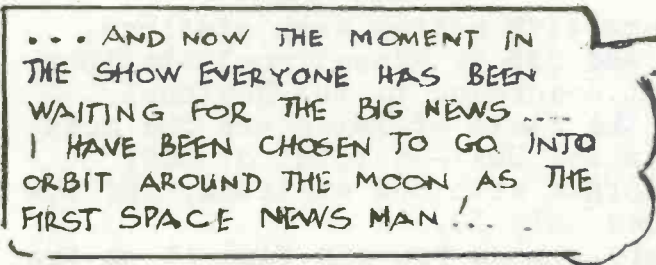 ... AND NOW THE MOMENT IN
THE SHOW EVERYONE HAS BEEN
WAITING FOR THE BIG NEWS....
I HAVE BEEN CHOSEN TO GO INTO
ORBIT AROUND THE MOON AS THE
FIRST SPACE NEWS MAN!...